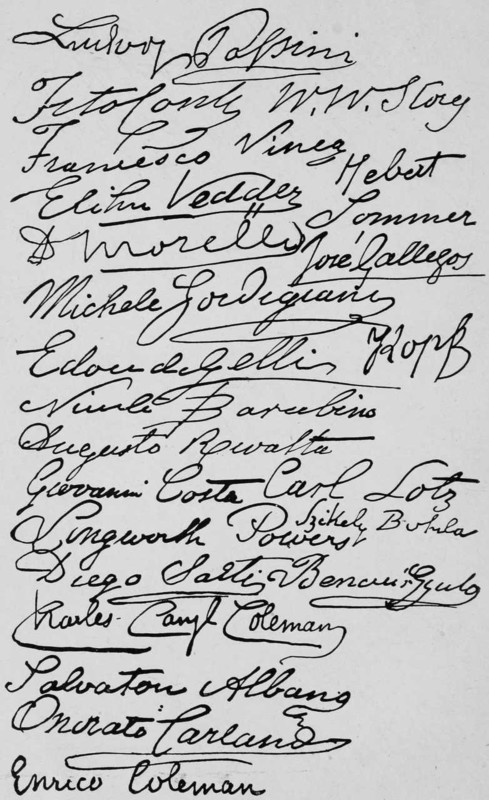 Ludwog Passini
Tito Conti W. W. Story
Francesco Vinea
Hebert
Elihu Vedder
Sommer
D Morelli
José Gallegos
Michele Gordigiani
Kopf
Edoardo Gelli
Barabino
Augusto Rivalta
Giovanni Costa Carl Lotz
Longworth Powers
Székely Bertala
Diego Sarti Benczúr Gyula
Charles Caryl Coleman
Salvatore Albano
Onorato Carlandi
Enrico Coleman